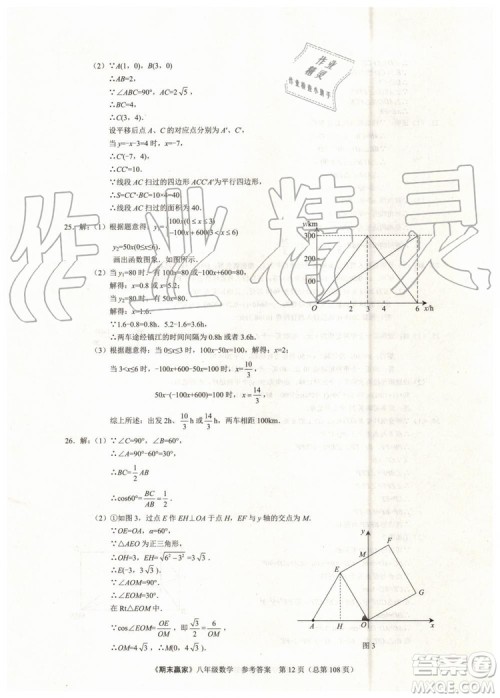 (2) ∵A(1, 0), B(3, 0)
∴AB=2,
∵∠CAB=90°, AC=2√5,
∴BC=4,
∴C(3, 4).
设平移后点 A、C 的对应点分别为 A'、C'
当 y=-x-3=4 时, x=-7,
∴C'(-7, 4),
∴CC'=10.
∵线段 AC 扫过的四边形 ACC'A' 为平行四边形,
∴S=10×4=40,
∴线段 AC 扫过的面积为 40.
25. 解: (1) 根据题意得: y₁= 100x(0≤x≤3)
-100x+600(3<x≤6)
y₂=50x(0≤x≤6)
画出函数图象.
(2) 当 y₁=80 时, 有 100x=80 或-100x+600=80,
解得: x=0.8 或 x=5.2,
当 y₂=80 时, 有 50x=80,
解得: x=1.6.
∵1.6-0.8=0.8h, 5.2-1.6=3.6h.
∴两车途经镇江的时间间隔为 0.8h 或 3.6h.
(3) 根据题意得: 当 0≤x≤3 时, 100x-50x=100, 解得: x=2;
当 3<x≤6 时, -100x+600-50x=100 时, x=10/3,
50x-(-100x+600)=100 时, x=14/3
综上所述: 出发 2h、10/3 h 或 14/3 h, 两车相距 100km.
26. 解: (1) ∵∠C=90°, ∠B=60°,
∴∠A=90°-60°=30°,
∴BC=1/2 AB
∴cos60°=BC/AB=1/2.
(2) ①如图 3, 过点 E 作 EH⊥OA 于点 H, EF 与 y 轴的交点为 M.
∵OE=OA, α=60°,
∴△AEO 为正三角形,
∴OH=3, EH=√(6²-3²)=3√3,
∴E(-3, 3√3).
∵∠AOM=90°,
∴∠EOM=30°.
在 Rt△EOM 中,
∵cos∠EOM=OE/OM, 即 √3/2=6/OM,
∴OM=4√3. ∴M(0, 4√3).
y/km
300
200
100
O
2
3
4
6
x/h
y
F
M
E
G
A
H
O
x
图 3
《期末赢家》八年级数学 参考答案 第 12 页 (总第 108 页)
作业精灵
作业
精灵